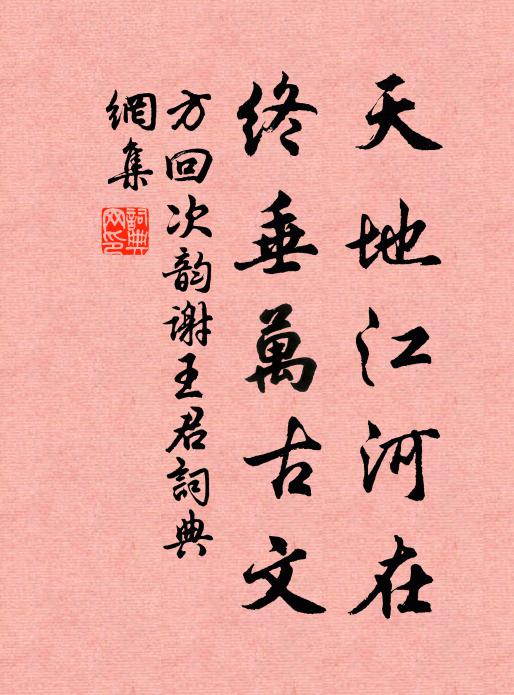 天地江河在
終垂萬古文
方回次韵谢王君詞典
網集
詞典網印